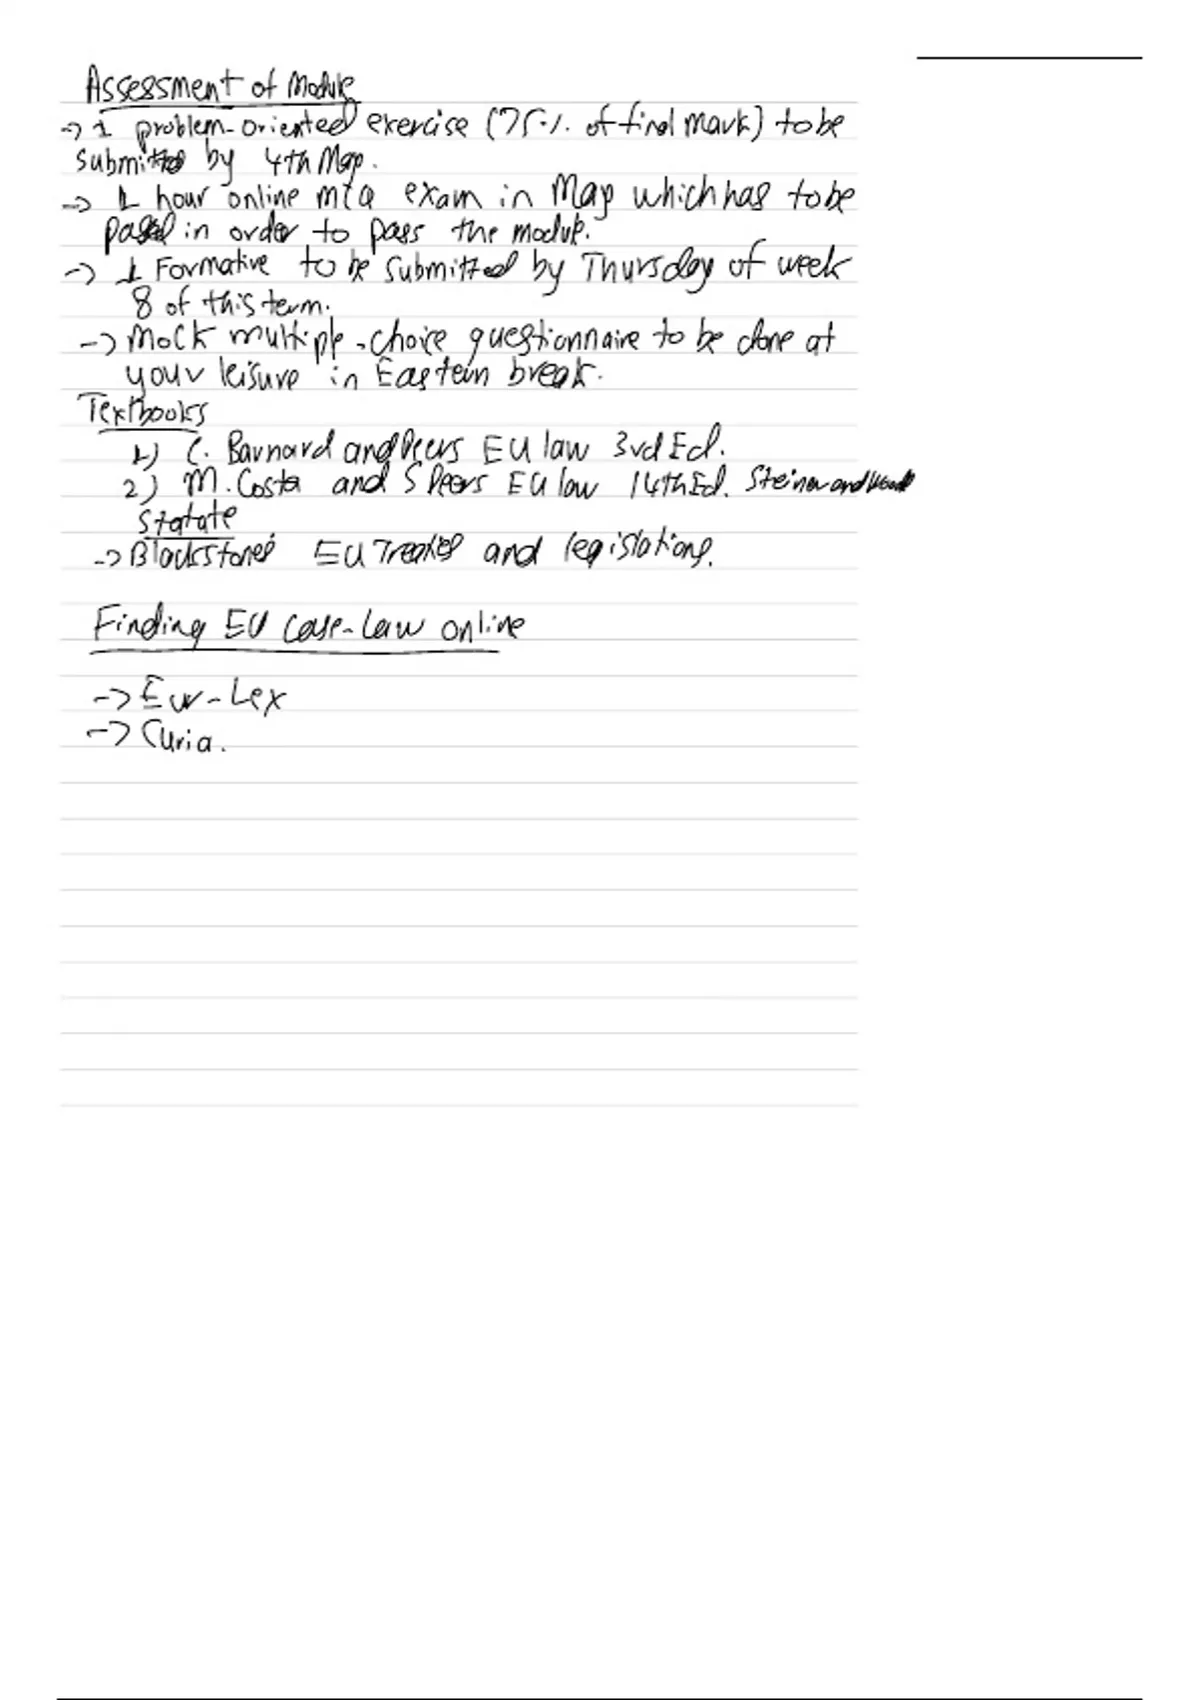 Assessment of Module
-> 1 problem-oriented exercise (75% of final mark) to be
submitted by 4th May.
-> 1 hour online mcq exam in May which has to be
passed in order to pass the module.
-> 1 Formative to be submitted by Thursday of week
8 of this term.
-> Mock multiple-choice questionnaire to be done at
your leisure in Eastern break.
Textbooks
1) C. Barnard and Peers EU law 3rd Ed.
2) M. Costa and S Peers EU law 14th Ed. Steiner and Woods
Statute
-> Blackstones EU Treaties and legislations.
Finding EU case-law online
-> Eur-Lex
-> Curia.